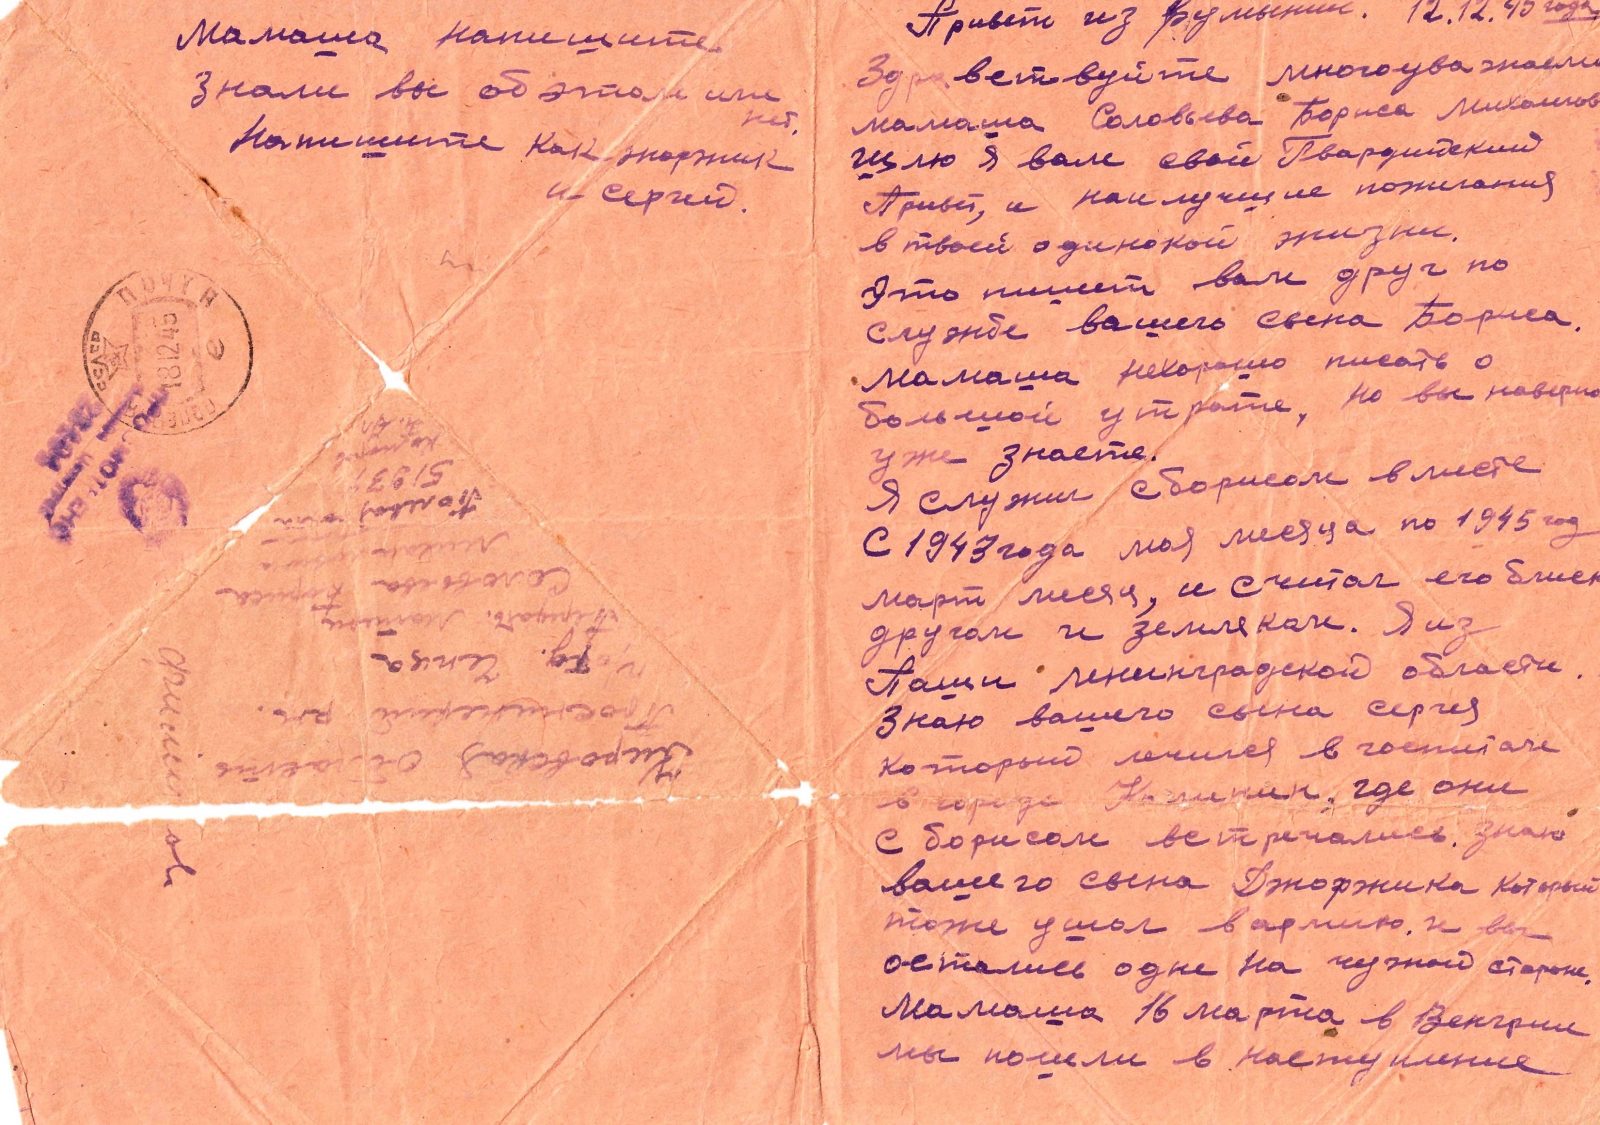 Привет из Румынии. 12.12.45 года
Здравствуйте многоуважаем
мамаша Соловьева Бориса Михайлов
Шлю я вам свой Гвардейский
Привет, и наилучшие пожелания
в твоей одинокой жизни.
Это пишет вам друг по
службе вашего сына Бориса.
Мамаша нехорошо писать о
большой утрате, но вы наверно
уже знаете.
Я служил с борисом вместе
С 1943 года мая месяца по 1945 год
март месяц, и считал его близк
другом и земляком. Я из
Паши ленинградской области.
Знаю вашего сына сергея
который лечился в госпитале
в городе Калинин, где они
с борисом встречались. знаю
вашего сына Джоржика который
тоже ушол в армию. и вы
остались одне на чужой стороне.
Мамаша 16 марта в Венгрии
мы пошли в наступление
Мамаша напишите
Знали вы об этом или
нет.
Напишите как жоржик
и сергей.
ПОЧТА
18 12 45
СССР
Кировская область
Просницкий рн.
Гд. Чепца
Передать. Матери
Соловьева Бориса
Михайловича
Полевая почта
51931